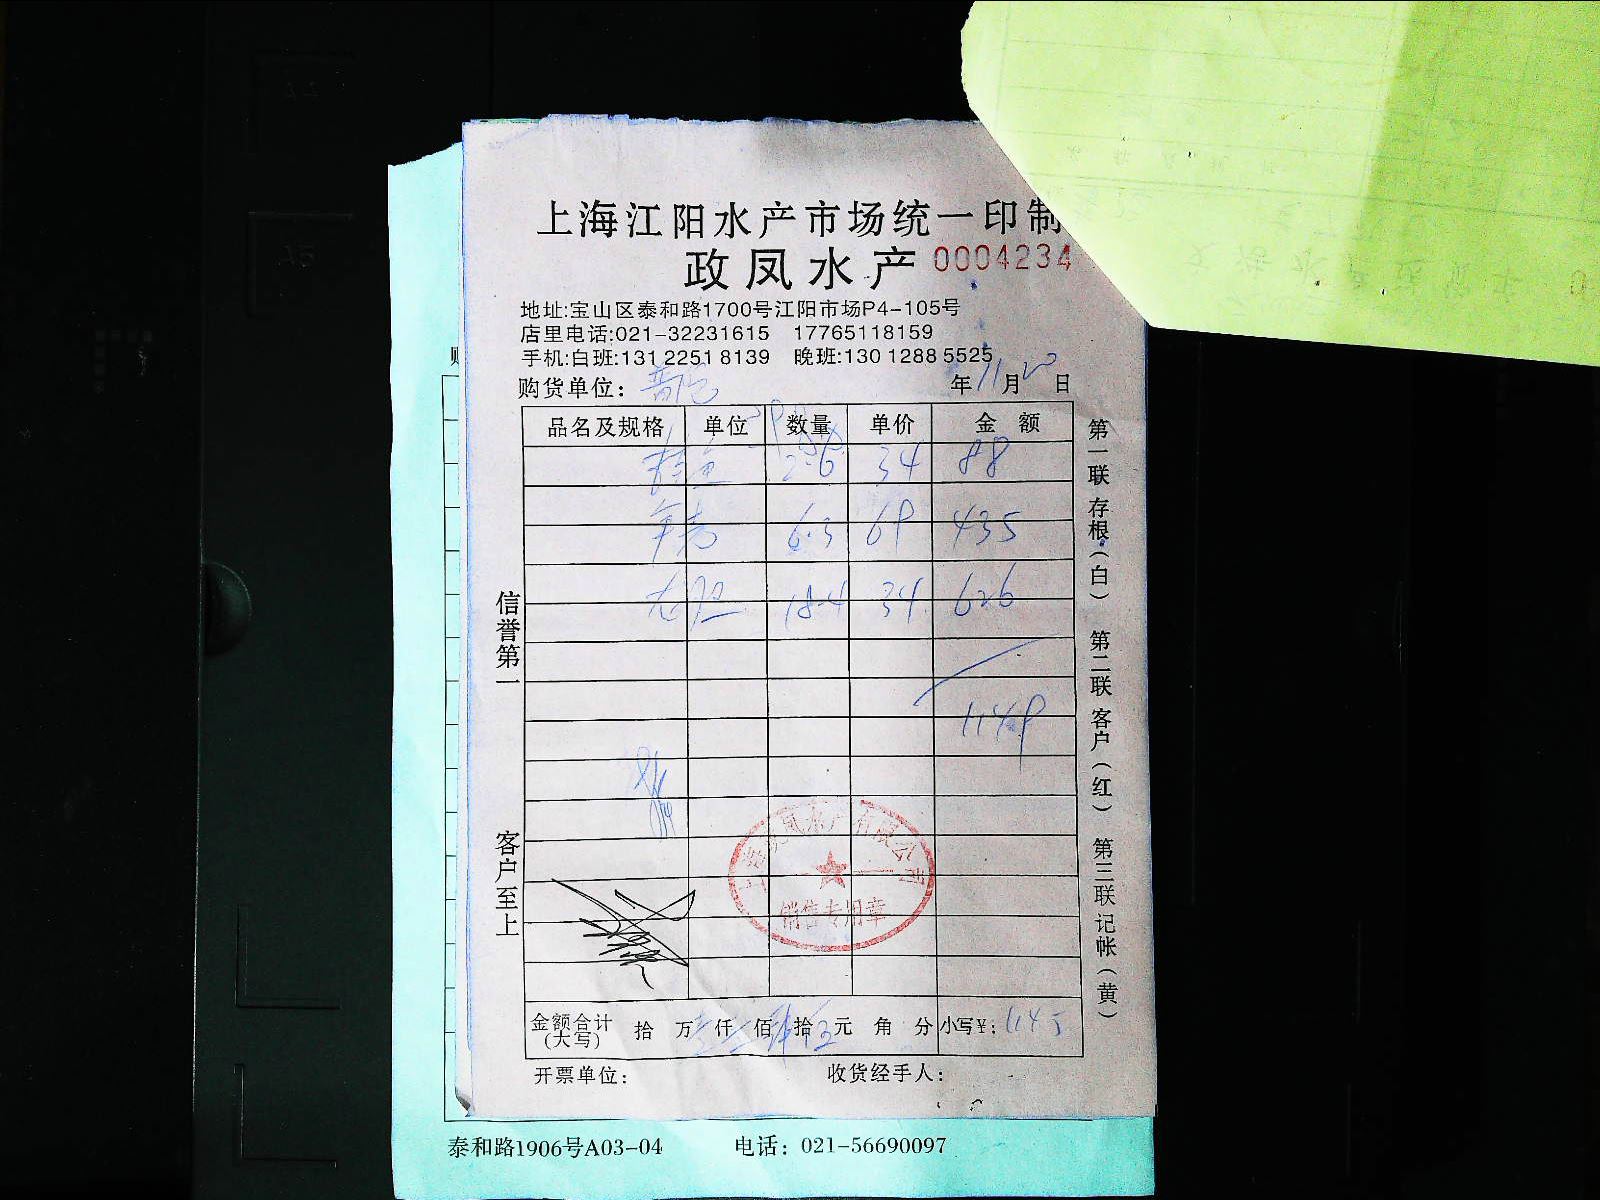 上海江阳水产市场统一印制
政凤水产 0004234
地址:宝山区泰和路1700号江阳市场P4-105号
店里电话:021-32231615 17765118159
手机:白班:131 2251 8139 晚班:130 1288 5525
购货单位: 年 11 月 20 日
品名及规格 单位 数量 单价 金额
2.6 34 88
6.3 69 435
18.4 34 626
1149
信誉第一
客户至上
第一联存根(白) 第二联客户(红) 第三联记帐(黄)
上海政凤水产有限公司
销售专用章
金额合计(大写) 拾 万 仟 佰 拾 元 角 分 小写¥:
开票单位: 收货经手人:
泰和路1906号A03-04 电话: 021-56690097